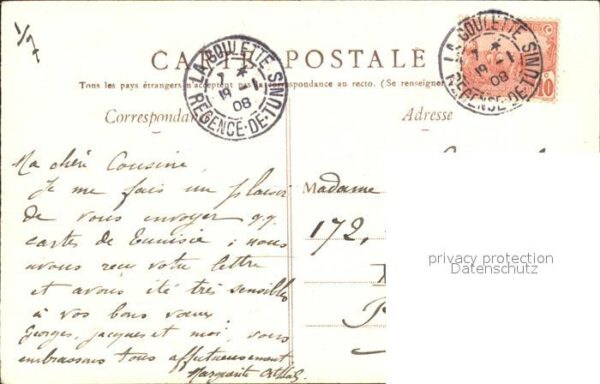 1/7
CARTE POSTALE
Tous les pays étrangers n'acceptent pas la correspondance au recto. (Se renseigner
Correspondan
Adresse
LA GOULETTE
RÉGENCE-DE-TUNIS
19 -1
08
LA GOULETTE
RÉGENCE-DE-TUNIS
19 -1
08
10
Ma chère Cousine,
Je me fais un plaisir
de vous envoyer q.q.
cartes de Tunisie ; nous
avons reçu votre lettre
et avons été très sensibles
à vos bons vœux
Georges, Jacques et moi, vous
embrassons tous affectueusement
Marguerite
Madame
172,
privacy protection
Datenschutz